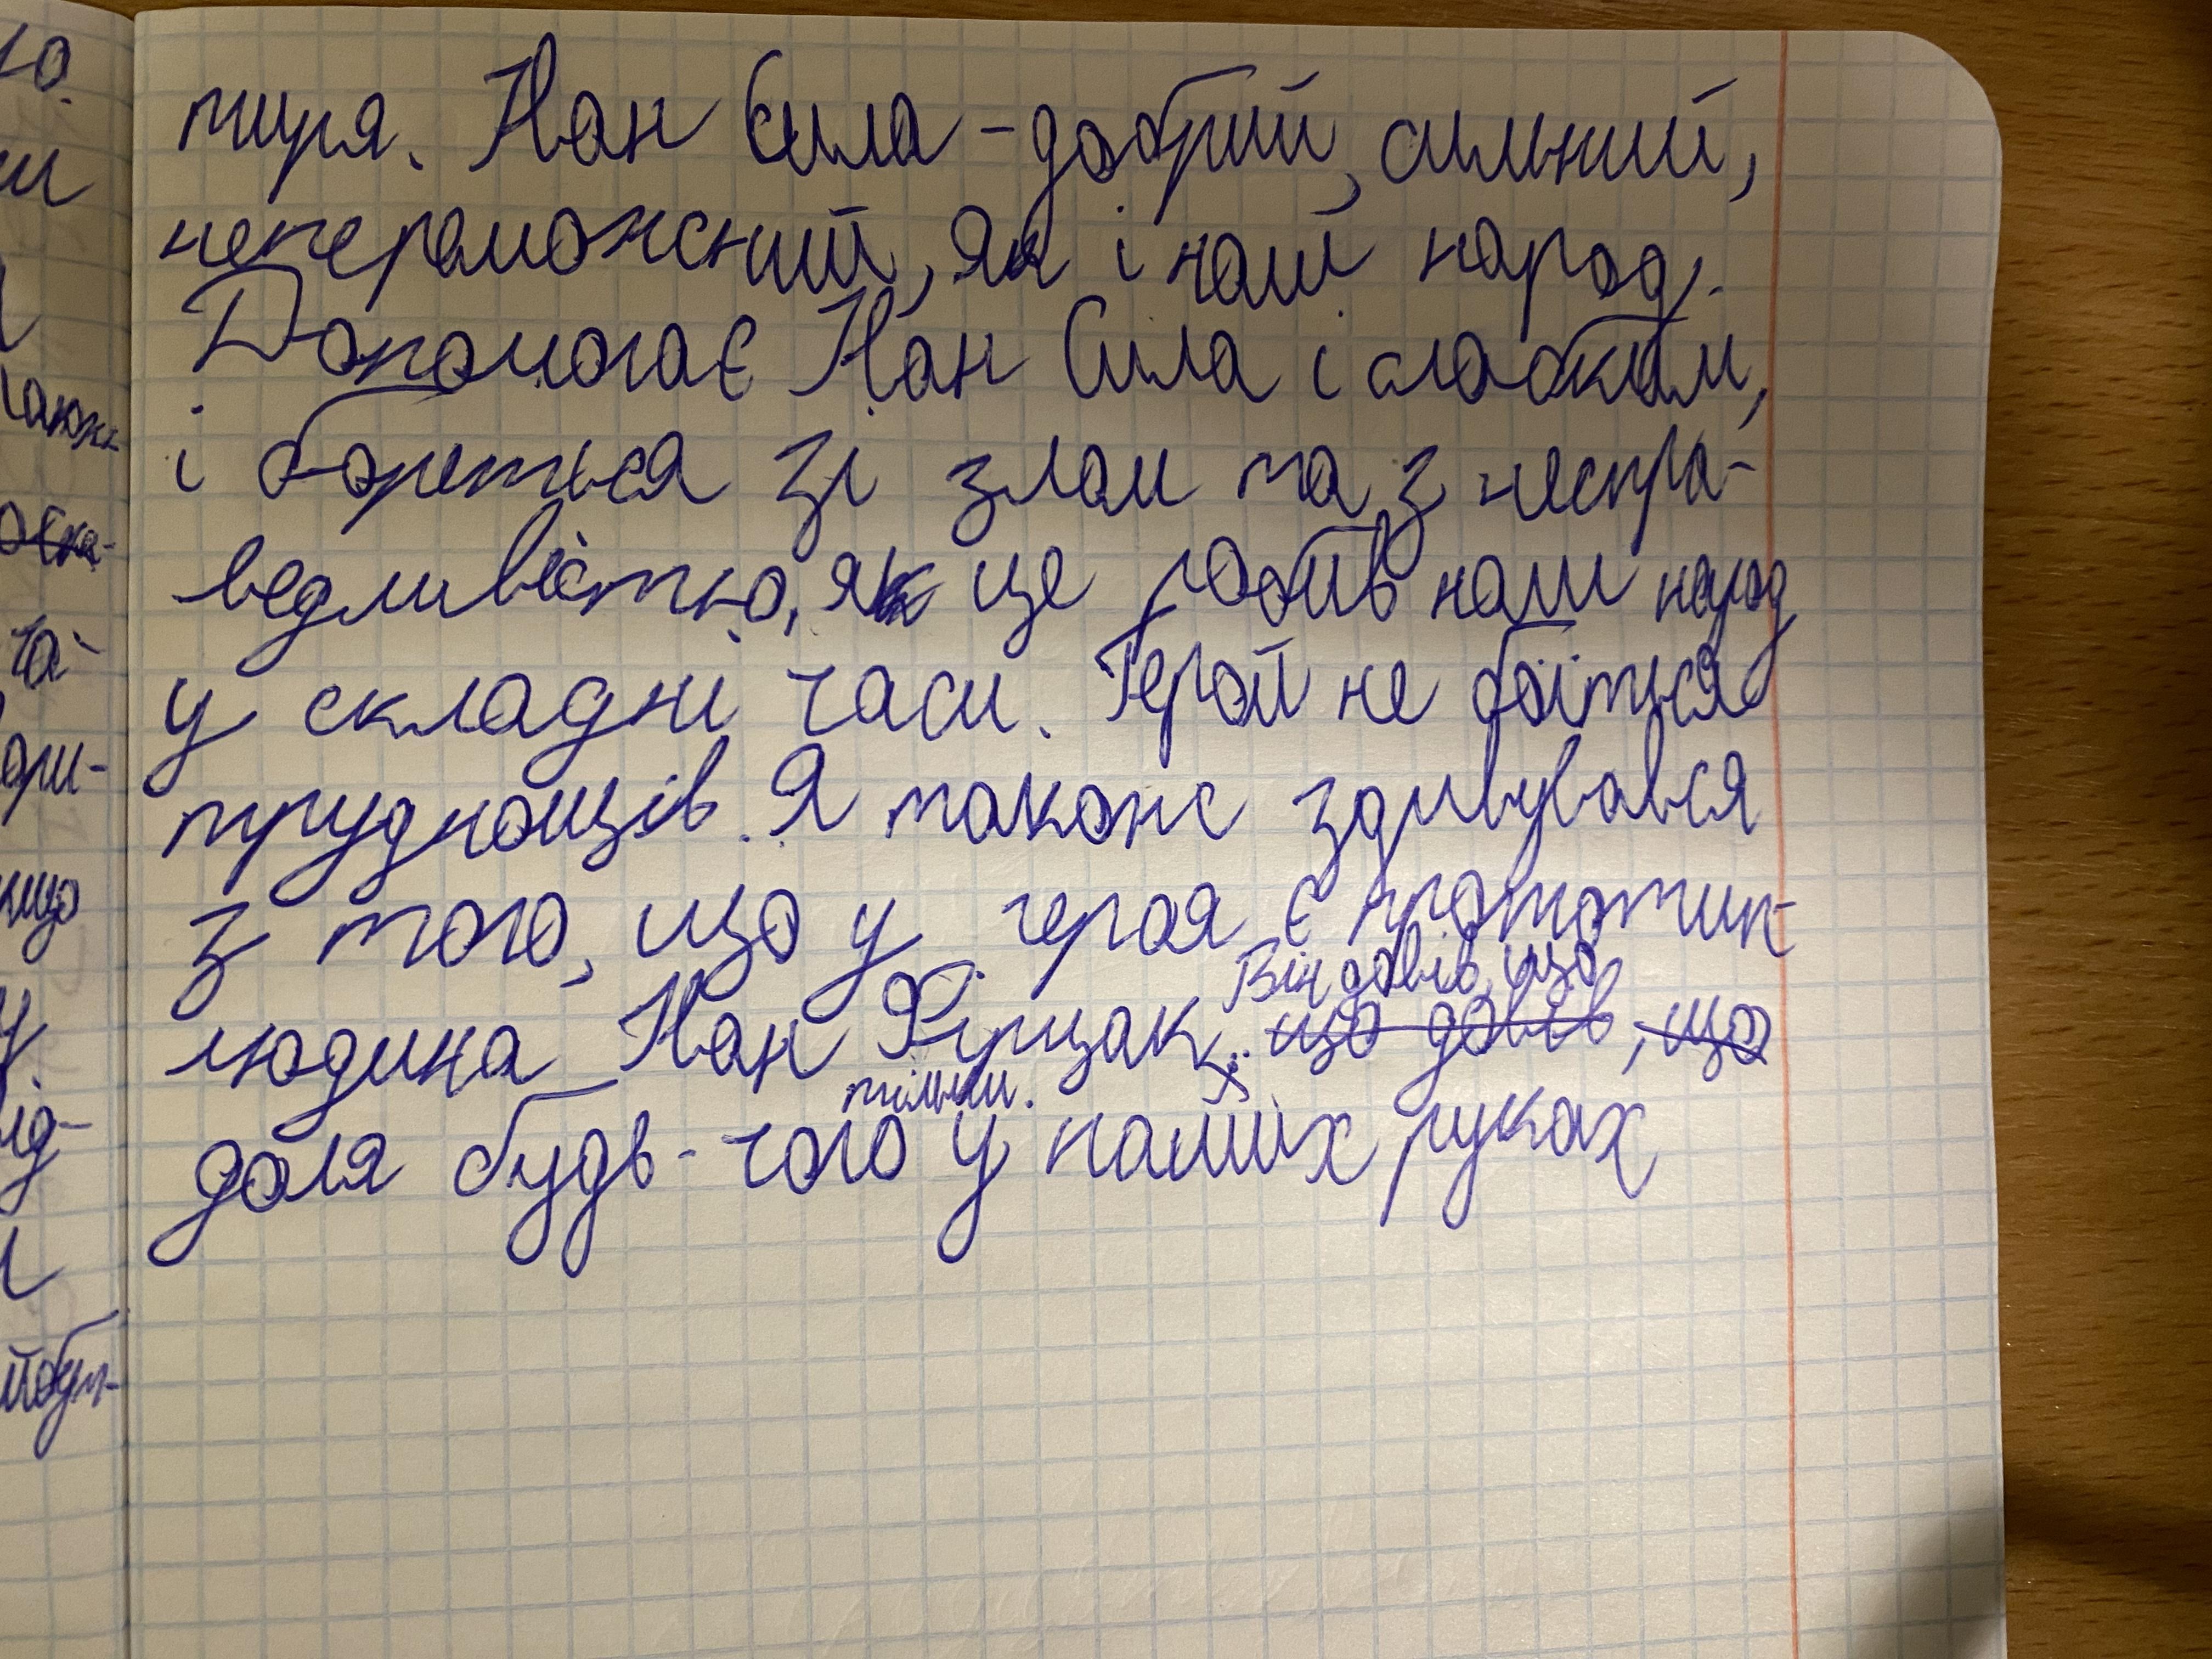 тиря. Нан Сила - добрий, сильний,
непереможний, як і наш народ.
Допомогає Нан Сила і слабким,
і бореться зі злом та з неспра-
ведливістю, як це робив наш народ
у складні часи. Герой не боїться
труднощів. Я также здивувався
з того, що у героя є прототип-
людина - Нан Фірцак. Він довів, що
що довів, що
тільки
доля будь-чого у наших руках